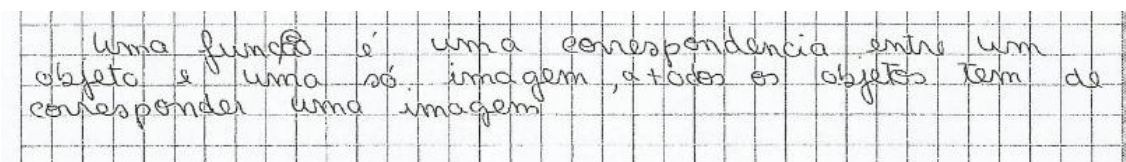 Uma função é uma correspondencia entre um
objeto e uma só imagem, a todos os objetos tem de
corresponder uma imagem